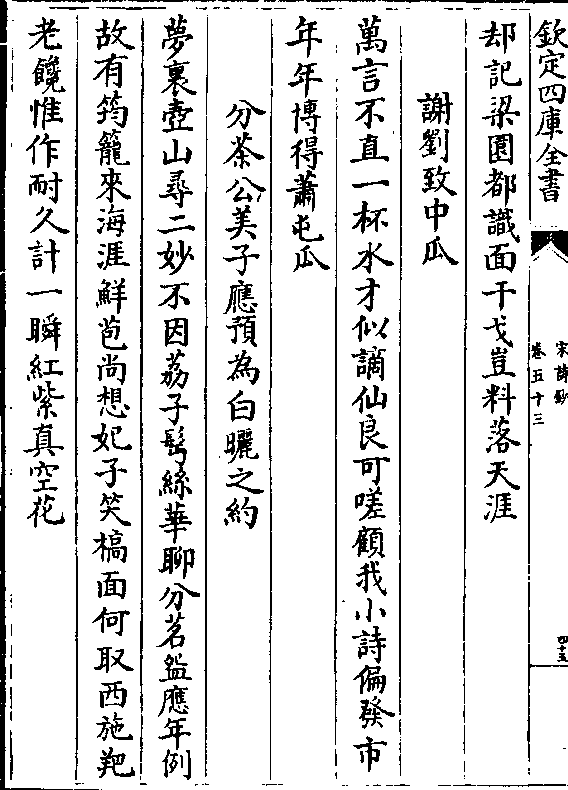 欽定四庫全書
宋詩鈔
卷五十三
四十五
却記梁園都識面干戈豈料落天涯
謝劉致中瓜
萬言不直一杯水才似謫仙良可嗟顧我小詩偏發市
年年博得蕭屯瓜
分茶公美子應預為白曬之約
夢裏壺山尋二妙不因荔子鬂絲華聊分茗盌應年例
故有筠籠來海涯鮮苞尚想妃子笑槁面何取西施耙
老饞惟作耐久計一瞬紅紫真空花